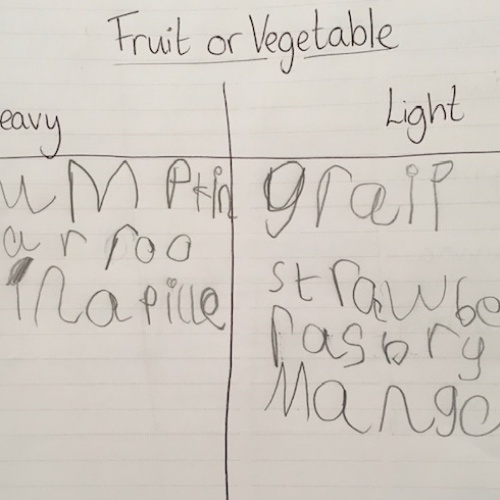 Fruit or Vegetable
eavy
Light
umptin
graip
arroo
strawbe
inapille
rasbry
Mango